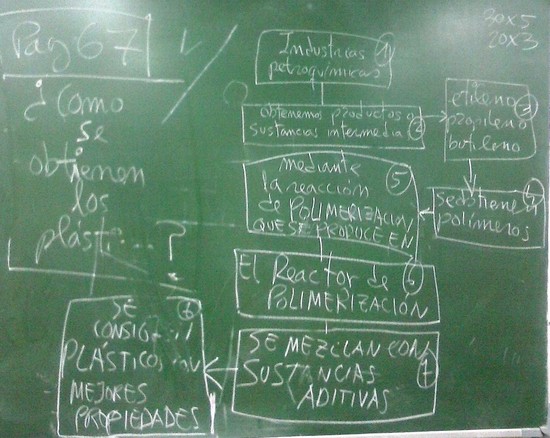 Pag 67
30x5
20x3
¿Como
se
obtienen
los
plásti...?
Industrias 1
petroquímicas
obtenemos productos o
sustancias intermedia 2
etileno 3
propileno
butileno
se obtienen 4
polímeros
mediante
la reacción 5
de POLIMERIZACION
QUE SE PRODUCE EN
El Reactor de 6
POLIMERIZACIÓN
SE MEZCLAN CON
SUSTANCIAS 7
ADITIVAS
SE 8
PLÁSTICOS
MEJORES
PROPIEDADES